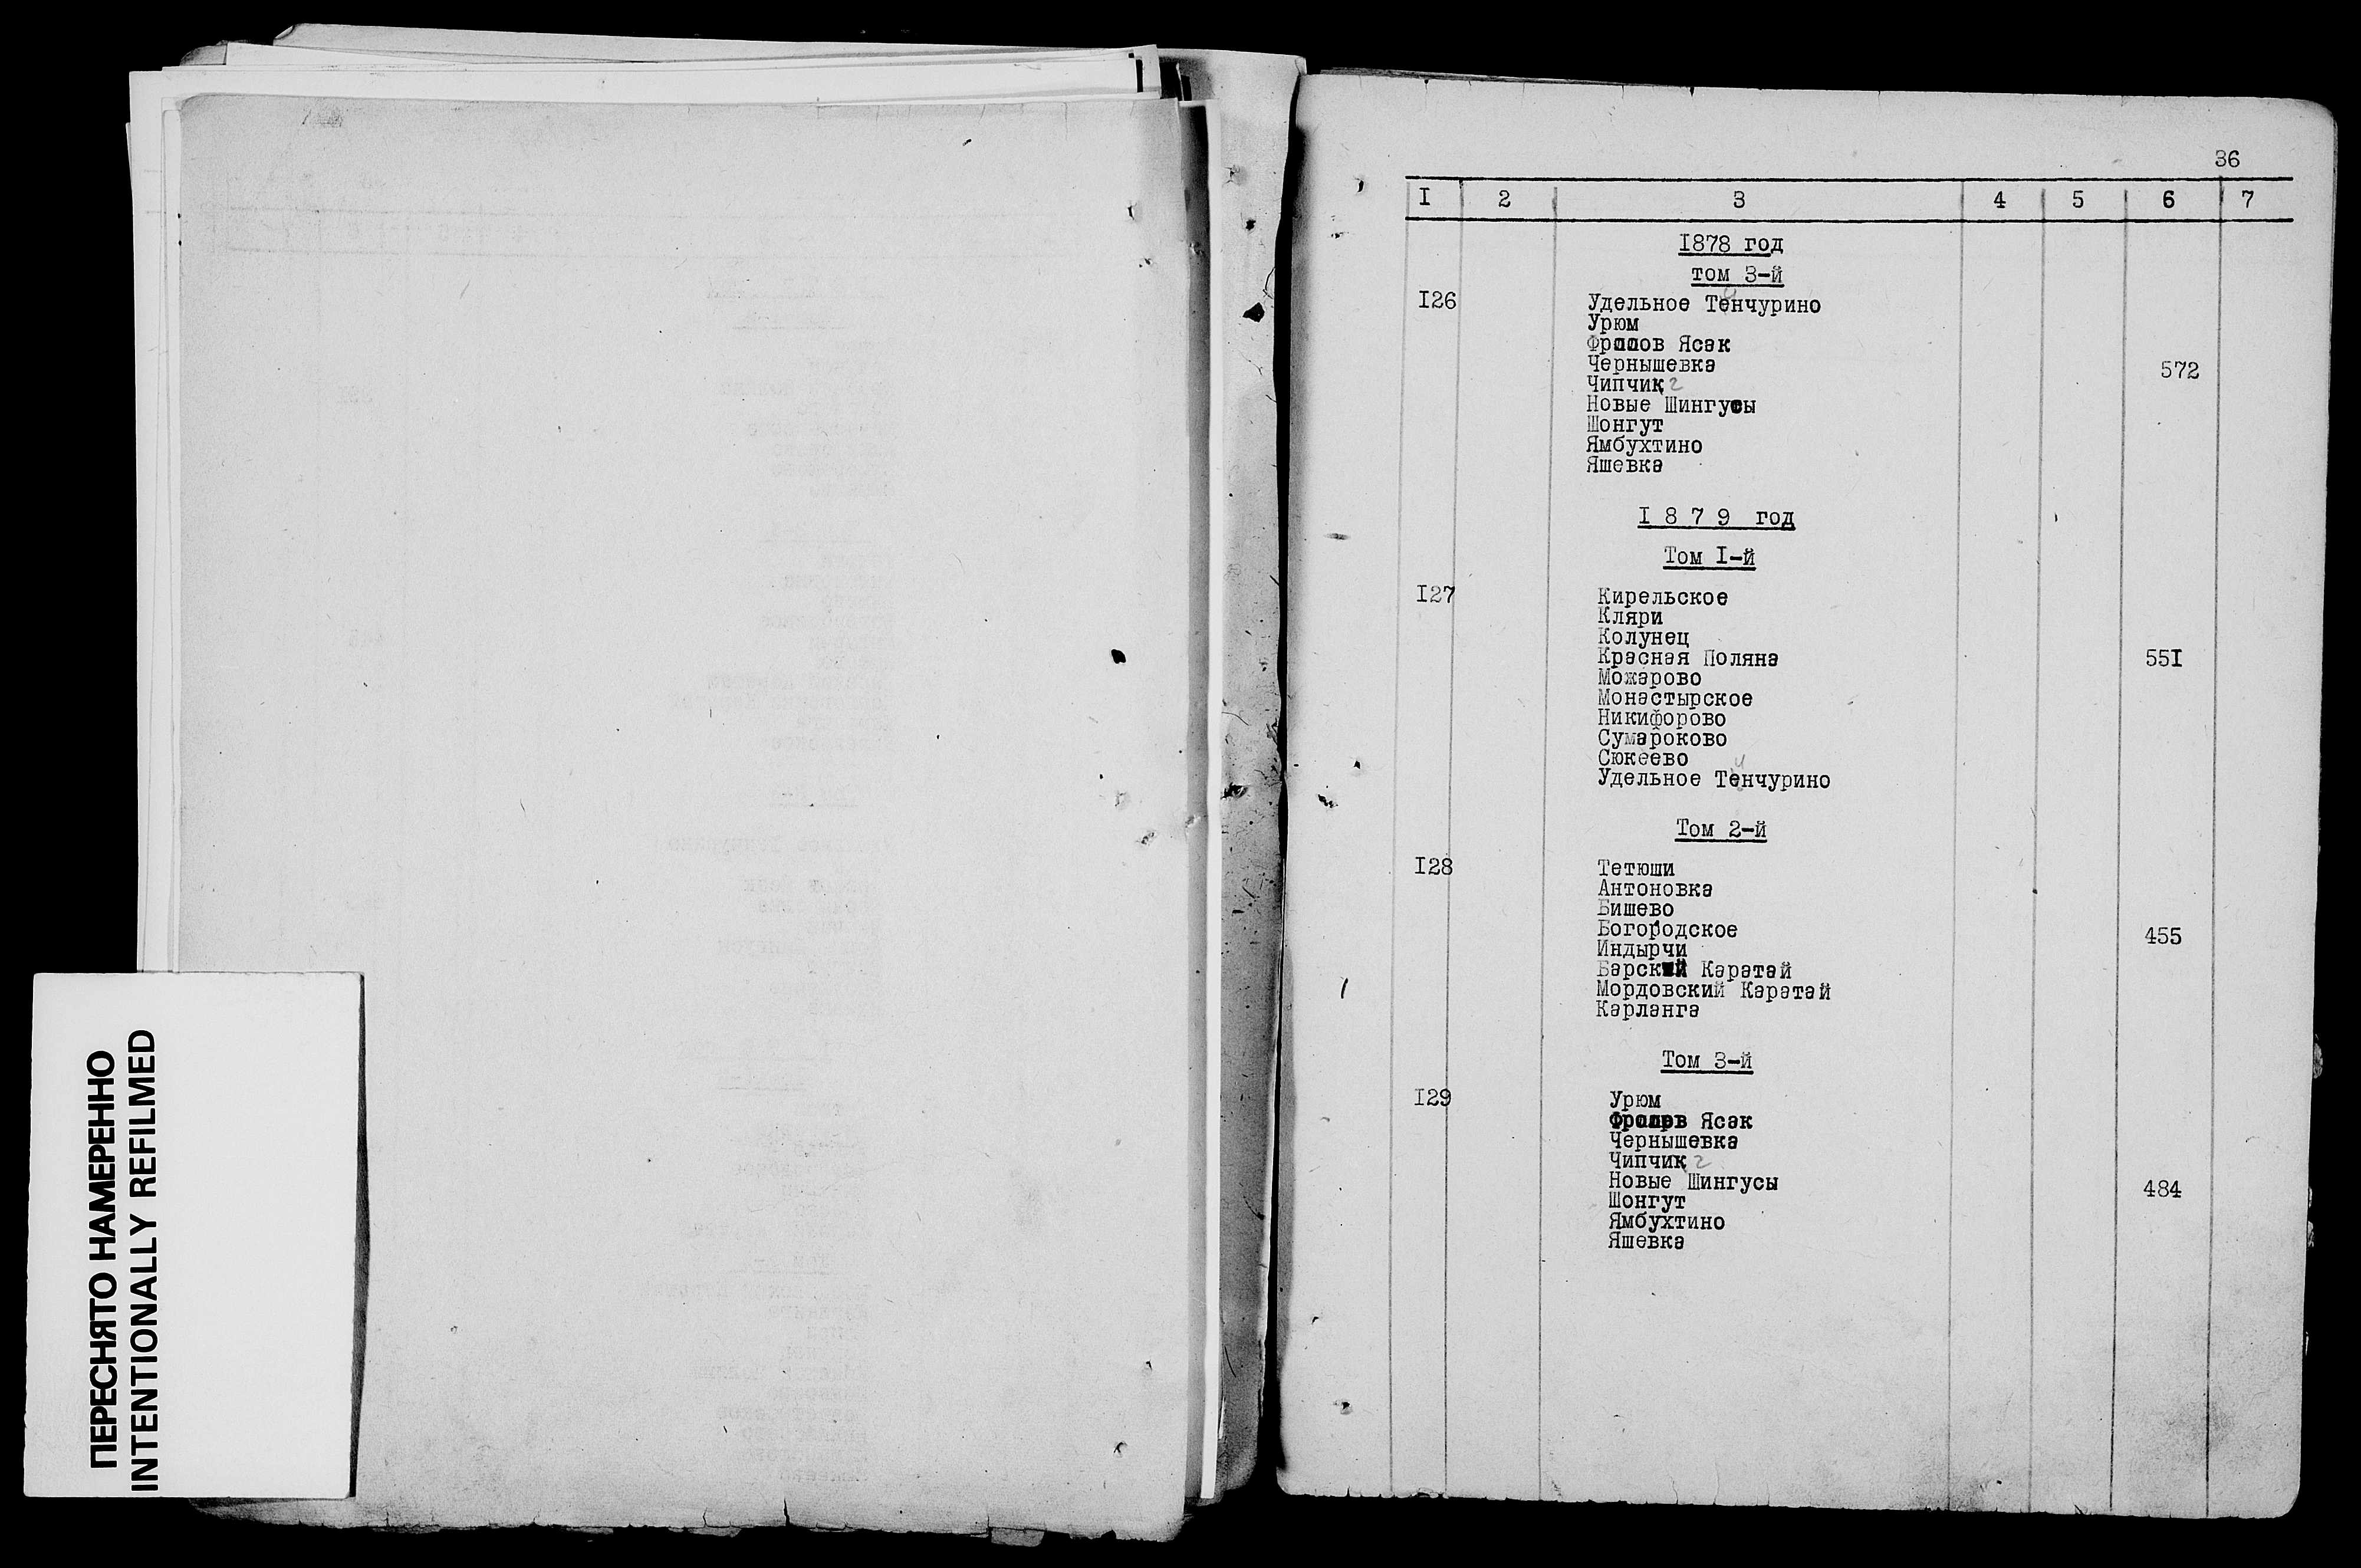 ПЕРЕСНЯТО НАМЕРЕННО
INTENTIONALLY REFILMED
36
I 2 3 4 5 6 7
I878 год
том 3-й
I26 Удельное Тенчурино
Урюм
Фролов Ясак
Чернышевка
572
Чипчик
Новые Шингусы
Шонгут
Ямбухтино
Яшевка
I 8 7 9 год
Том I-й
I27 Кирельское
Кляри
Колунец
Красная Поляна 55I
Можарово
Монастырское
Никифорово
Сумароково
Сюкеево
Удельное Тенчурино
Том 2-й
I28 Тетюши
Антоновка
Бишево
Богородское 455
Индырчи
Барский Каратай
Мордовский Каратай
Карланга
Том 3-й
I29 Урюм
Фролов Ясак
Чернышевка
Чипчик
Новые Шингусы 484
Шонгут
Ямбухтино
Яшевка